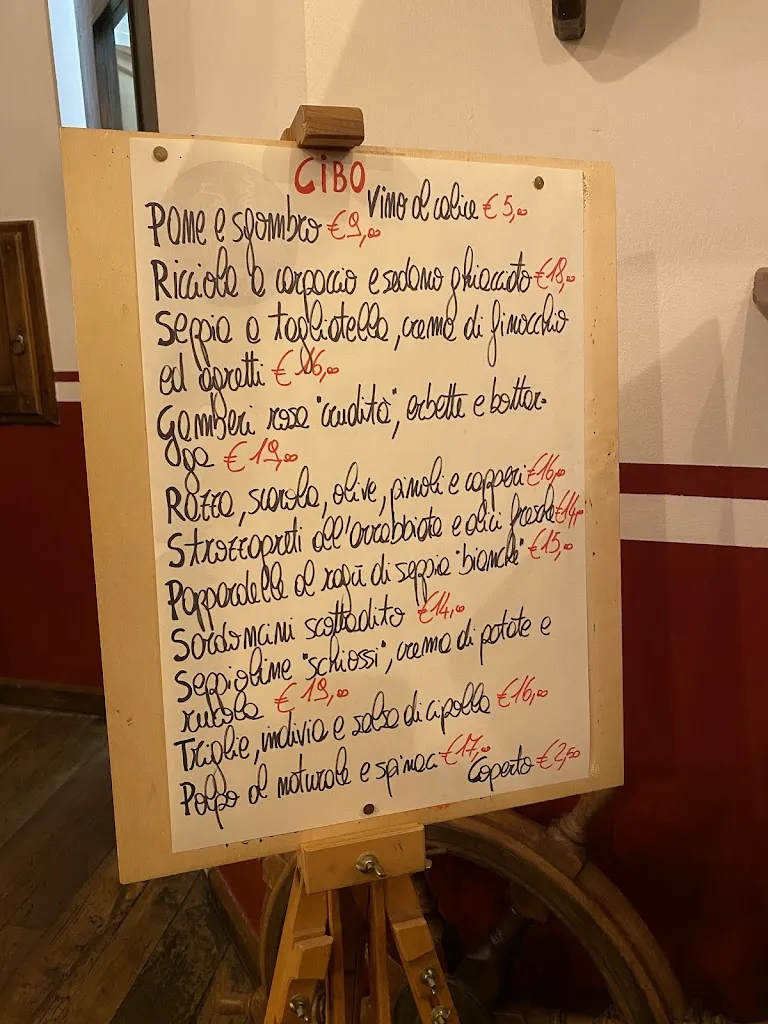 CIBO
Vino al calice € 5,00
Pane e sgombro € 9,00
Ricciola a carpaccio e sedano ghiacciato €18,00
Seppia a tagliatella, crema di finocchio
ed agretti € 16,00
Gamberi rosa "crudità", erbette e bottar-
ga € 19,00
Razza, scarola, olive, pinoli e capperi €16,00
Strozzapreti all'arrabbiata e alici fresche €14,00
Pappardelle al ragù di seppia "bianche" €15,00
Sardoncini scottadito €14,00
Seppioline "schiossi", crema di patate e
rucola € 19,00
Triglie, indivia e salsa di cipolla €16,00
Polpo al naturale e spinaci €17,00
Coperto €2,50